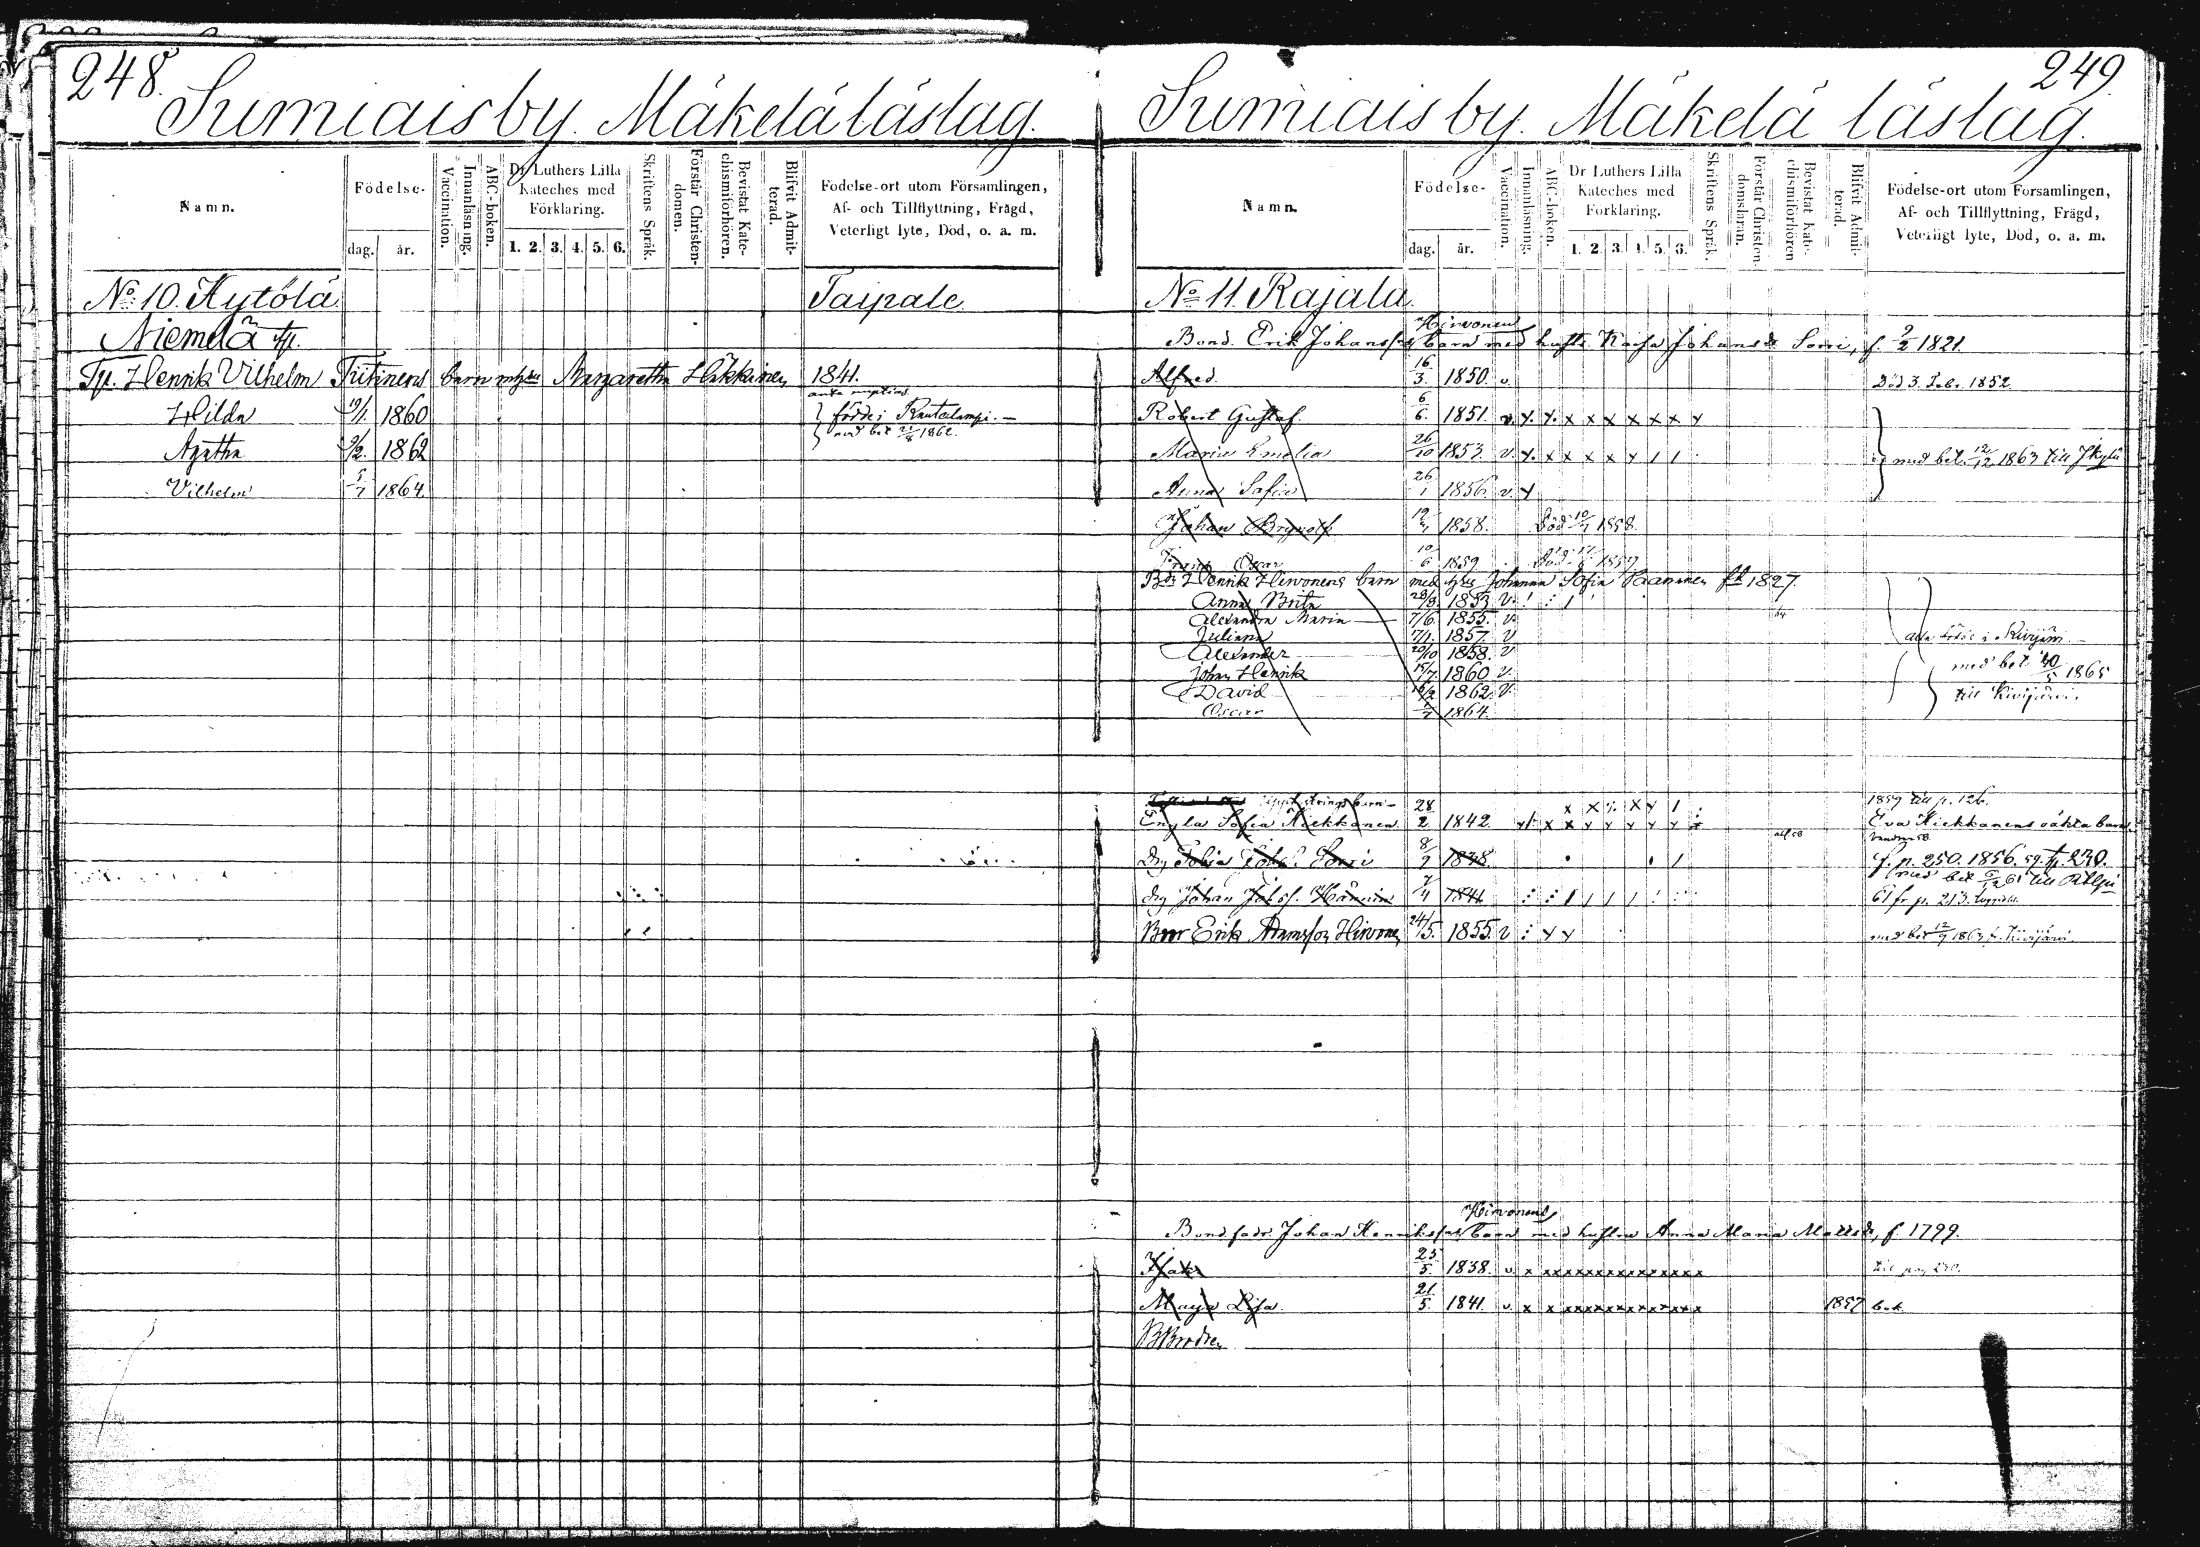 248.
Sumiais by. Mäkelä läslag.
Namn.
Födelse-
dag.
år.
Vaccination.
Innanläsning.
ABC-boken.
Dr Luthers Lilla
Kateches med
Förklaring.
1. 2. 3. 4. 5. 6.
Skriftens Språk.
Förstår Christen-
domen.
Bevistat Kate-
chismiförhören.
Blifvit Admit-
terad.
Födelse-ort utom Församlingen,
Af- och Tillflyttning, Frägd,
Veterligt lyte, Död, o. a. m.
No 10. Kytölä Taipale
Niemelä tp.
Tp. Henrik Vilhelm Tiitinens barn Margaretha Häkkinen 1841.
Hilda 19/1 1860 födde i Rautalampi.
Agatha 9/2. 1862 med bet 21/8 1862.
Vilhelm 5/7 1864.
249.
Sumiais by. Mäkelä läslag.
Namn.
Födelse-
dag.
år.
Vaccination.
Innanläsning.
ABC-boken.
Dr Luthers Lilla
Kateches med
Förklaring.
1. 2. 3. 4. 5. 6.
Skriftens Språk.
Förstår Christen-
domslaran.
Bevistat Kate-
chismiförhören
Blifvit Admit-
terad.
Födelse-ort utom Församlingen,
Af- och Tillflyttning, Frägd,
Veterligt lyte, Död, o. a. m.
No 11. Rajala.
Hirvonens
Bond. Erik Johanss barn med hustr. Kaisa Johansdr Sorri, f. 9/2 1821.
Alfred. 16/3. 1850. v. Död 3. Febr. 1852
Robert Gustaf. 6/6. 1851. v. x. x. x x x x x x x
Maria Emelia 26/10 1853. v. x. x x x x x 1 1 med bet. 12/12 1863 till Jkylä
Anna Sofia 26/1 1856 v. x
Johan Brynolf 12/4 1858. Död 10/7 1858.
Oscar 10/6 1859 Död 1859
Henrik Hirvonens barn med Johanna Sofia Paananen 1827.
Anna Brita 28/8. 1853 v.
Alexandra Maria 7/6. 1855. v.
Juliana 7/1. 1857. v alla födde i Kivijärvi
Alexander 20/10 1858. v
Johan Henrik 15/7 1860 v. med bet 20/5 1865
David 1862. v. till Kivijärvi.
Oscar 1864.
barn 28/2 1842. 1859 till p. 126.
Engla Sofia Kiekkanen Eva Kiekkanens oäkta barn.
Drg Tobias Sorri 8/9 1838 f. p. 250. 1856. 59. t. p. 230.
med bet 61 till
drg Johan Hänninen 7/4 1841 61 fr p. 213.
Erik Adamsson Hirvonen 24/5. 1855. v med bet 12/9 1863 fr. Kivijärvi.
Hirvonens
Bond. fadr. Johan Henrikss barn med hustru Anna Maria Mattsdr, f. 1799.
Isak 25/5 1838. v. x xxxxxxxxxxxxxx till pag 230.
Maja Lisa. 21/5. 1841. v. x x xxxxxxxxxxxx 1857 bok